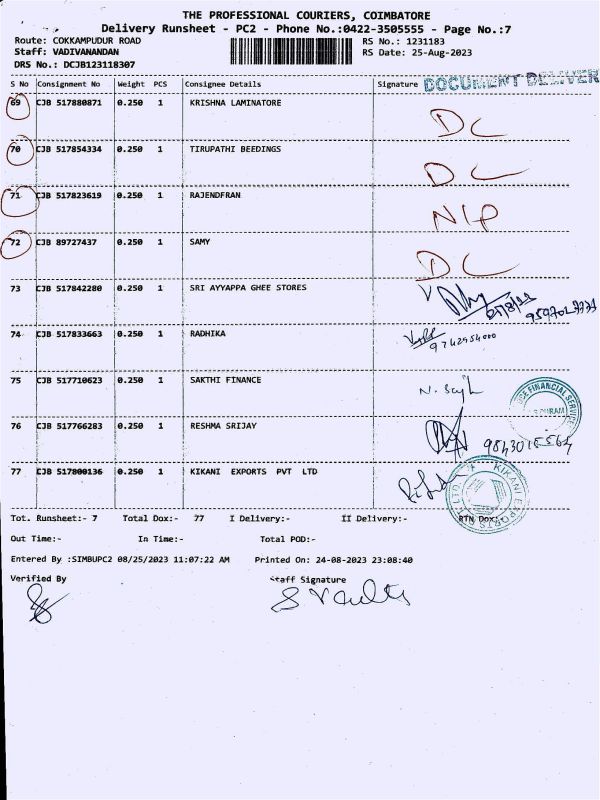 THE PROFESSIONAL COURIERS, COIMBATORE
Delivery Runsheet - PC2 - Phone No.:0422-3505555 - Page No.:7
Route: COKKAMPUDUR ROAD RS No.: 1231183
Staff: VADIVANANDAN RS Date: 25-Aug-2023
DRS No.: DCJB123118307
S No Consignment No Weight PCS Consignee Details Signature DOCUMENT DELIVER
69 CJB 517880871 0.250 1 KRISHNA LAMINATORE
DC
70 CJB 517854334 0.250 1 TIRUPATHI BEEDINGS
DC
71 CJB 517823619 0.250 1 RAJENDFRAN
N/P
72 CJB 89727437 0.250 1 SAMY
DC
73 CJB 517842280 0.250 1 SRI AYYAPPA GHEE STORES
74 CJB 517833663 0.250 1 RADHIKA
9742954000
75 CJB 517710623 0.250 1 SAKTHI FINANCE
FINANCIAL SERVICE
76 CJB 517766283 0.250 1 RESHMA SRIJAY
77 CJB 517800136 0.250 1 KIKANI EXPORTS PVT LTD
KIKANI EXPORTS PVT LTD.
Tot. Runsheet:- 7 Total Dox:- 77 I Delivery:- II Delivery:- RTN Dox:-
Out Time:- In Time:- Total POD:-
Entered By :SIMBUPC2 08/25/2023 11:07:22 AM Printed On: 24-08-2023 23:08:40
Verified By Staff Signature